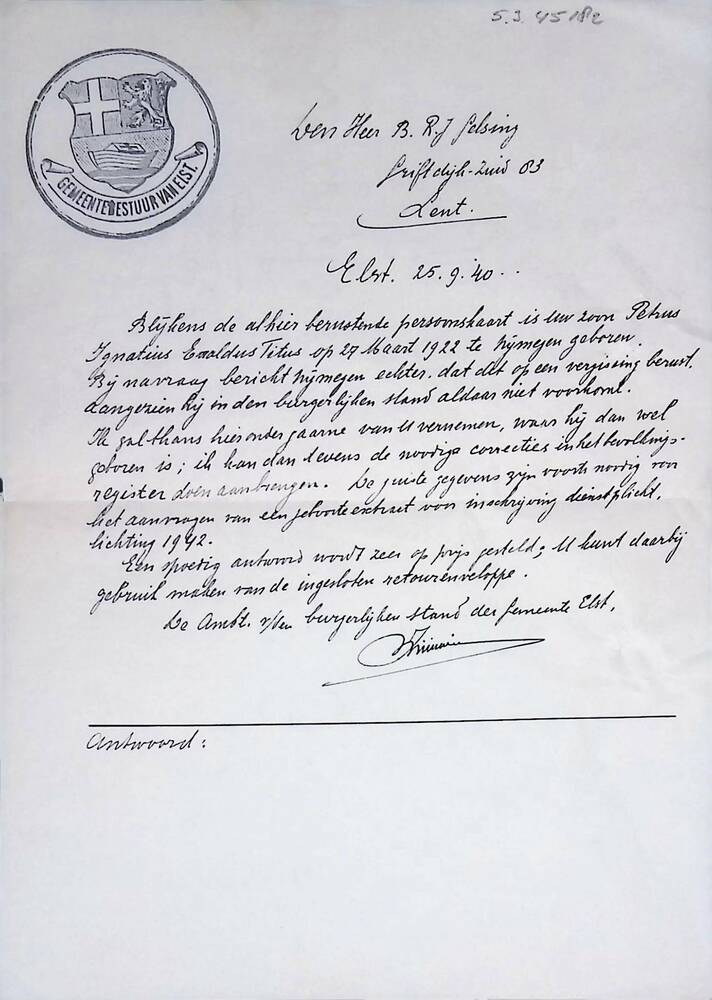 5.3.45182
GEMEENTEBESTUUR VAN ELST.
Den Heer B. R. J Gelsing
Griftdijk-Zuid 83
Lent.
Elst. 25.9.40..
Blijkens de alhier berustende persoonskaart is uw zoon Petrus
Ignatius Ewaldus Titus op 27 Maart 1922 te Nijmegen geboren.
Bij navraag bericht Nijmegen echter. dat dit op een vergissing berust,
aangezien hij in den burgerlijken stand aldaar niet voorkomt.
Ik zal thans hieronder gaarne van U vernemen, waar hij dan wel
geboren is; ik kan dan tevens de noodige correcties in het bevolkings-
register doen aanbrengen. De juiste gegevens zijn voorts noodig voor
het aanvragen van een geboorteextract voor inschrijving dienstplicht,
lichting 1942.
Een spoedig antwoord wordt zeer op prijs gesteld; U kunt daarbij
gebruik maken van de ingesloten retourenveloppe.
De Ambt. v/den burgerlijken stand der Gemeente Elst,
Antwoord: